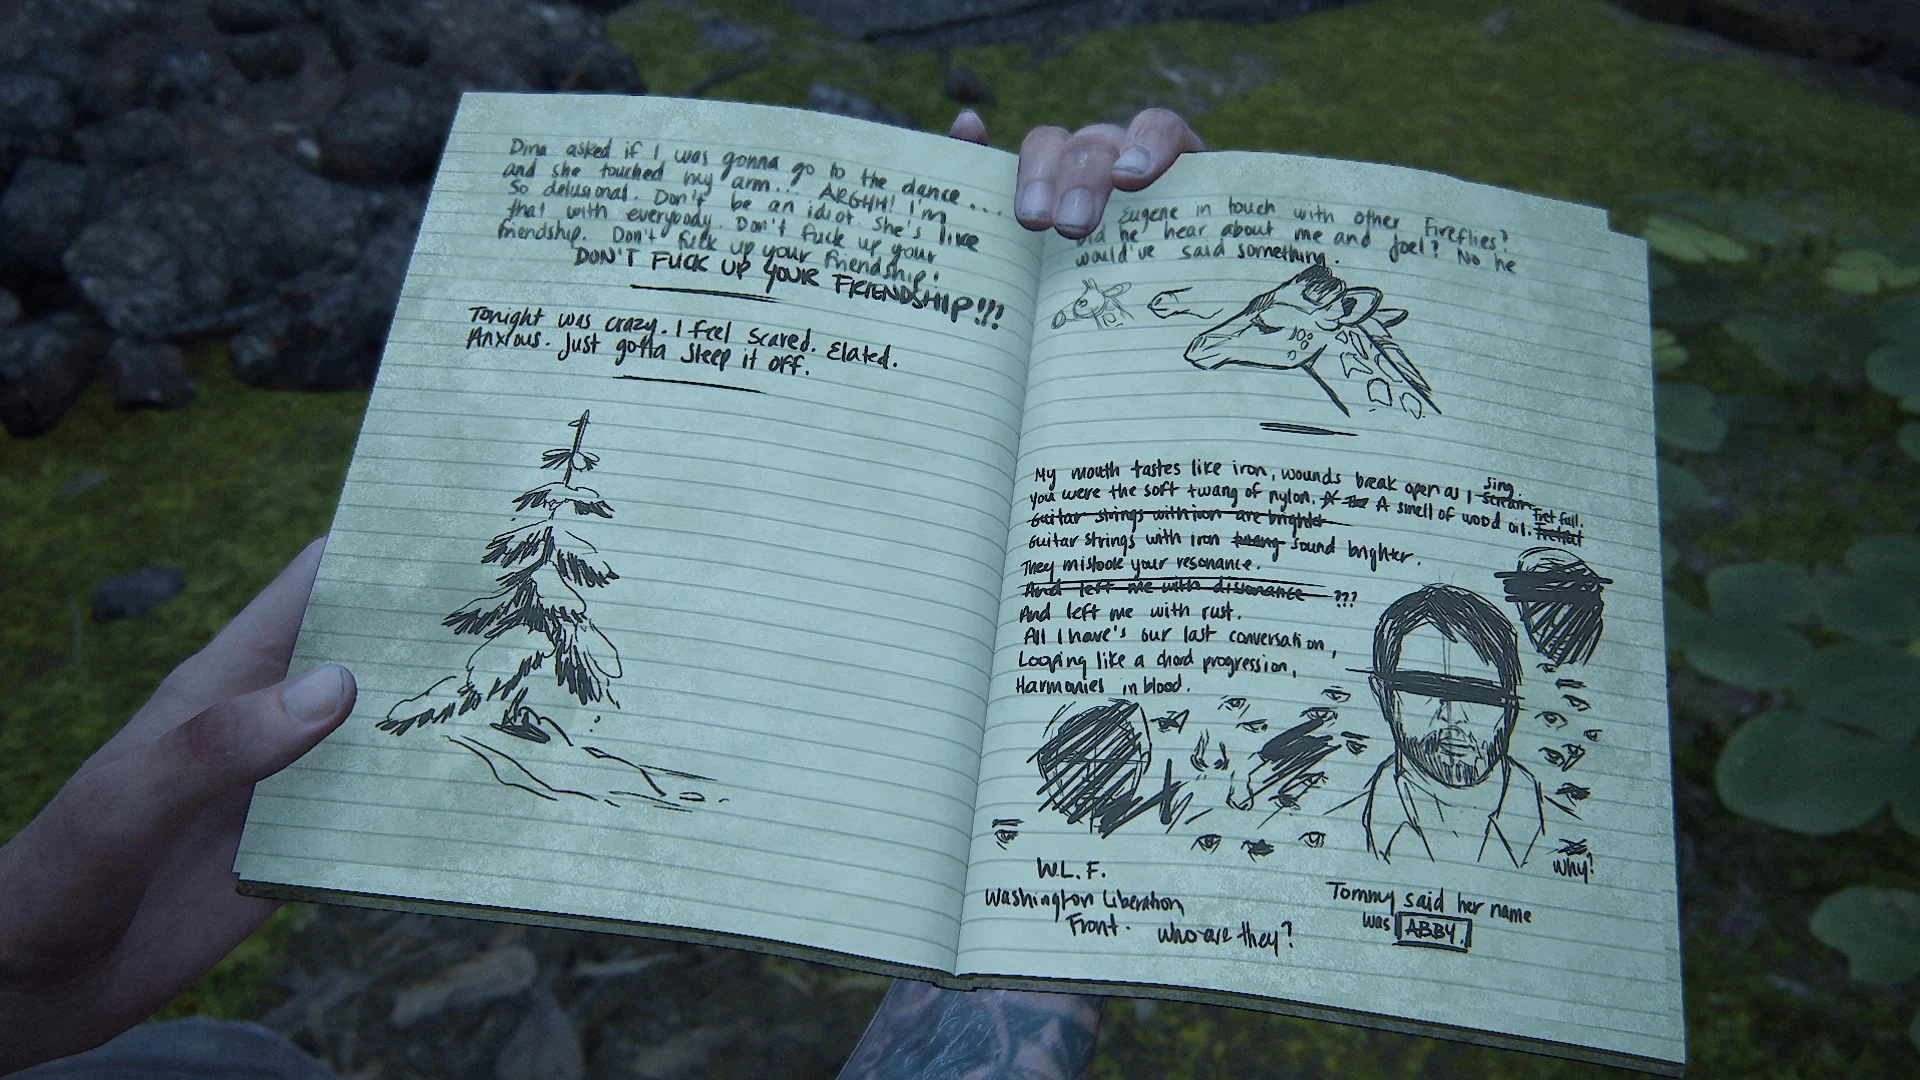 Dina asked if I was gonna go to the dance...
and she touched my arm... ARGHH! I'm
so delusional. Don't be an idiot. She's like
that with everybody. Don't fuck up your
friendship. Don't fuck up your friendship!
DON'T FUCK UP YOUR FRIENDSHIP!!!
Tonight was crazy. I feel scared. Elated.
Anxious. Just gotta sleep it off.
Eugene in touch with other Fireflies?
Did he hear about me and Joel? No he
would've said something.
My mouth tastes like iron, wounds break open as I scream sing.
You were the soft twang of nylon. A smell of wood oil. Fret full.
Guitar strings with iron are brighter
Guitar strings with iron twang sound brighter.
They mistook your resonance.
And left me with dissonance ???
And left me with rust.
All I have's our last conversation,
Looping like a chord progression,
Harmonies in blood.
why?
W.L.F.
Washington Liberation
Front. who are they?
Tommy said her name
was ABBY.